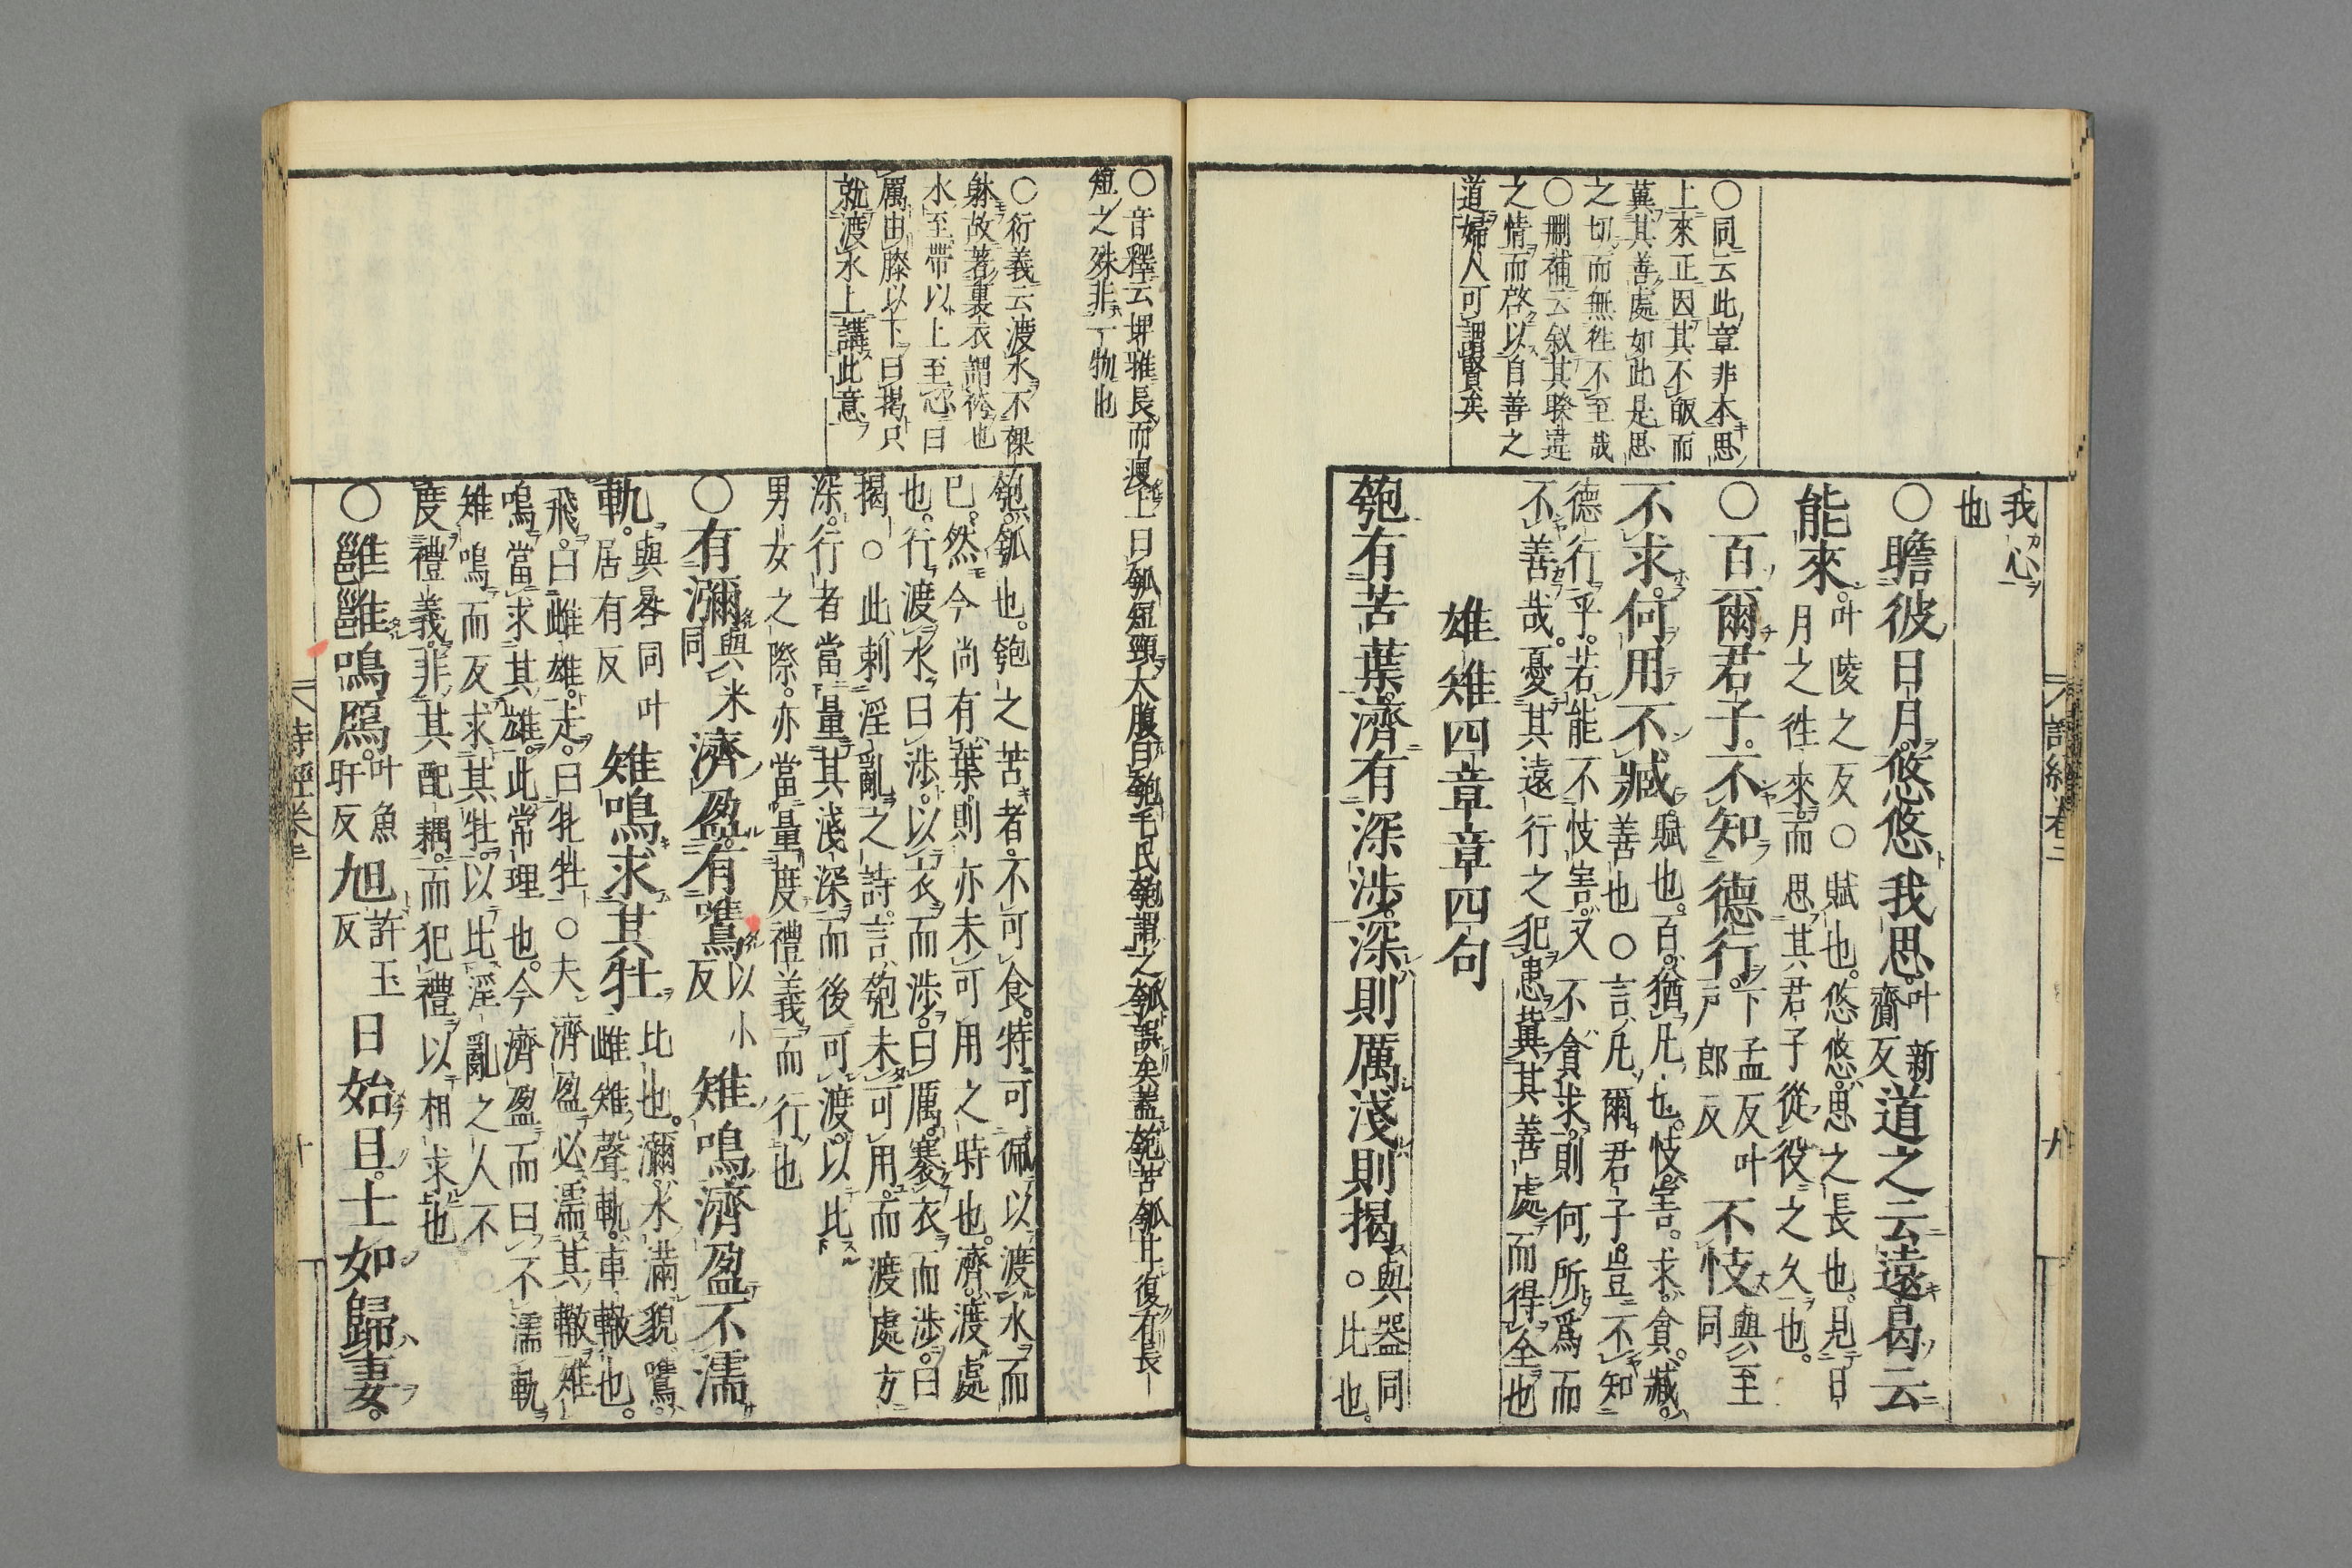 我心
也
○瞻彼日月悠悠我思叶新齎反道之云遠曷云
能來叶陵之反○賦也悠悠思之長也見日月之徃來而思其君子從役之久也
○百爾君子不知德行下孟反叶戶郎反不忮與至同
不求何用不臧賦也百猶凡也忮害求貪臧善也○言凡爾君子豈不知
德行乎若能不忮害又不貪求則何所爲而
不善哉憂其遠行之犯患兾其善處而得全也
雄雉四章章四句
匏有苦葉濟有深涉深則厲淺則揭與器同○比也
○同云此章非本思
上來正因其不皈而
兾其善處如此是思
之切而無徃不至哉
○刪補云叙其暌違
之情而啓以自善之
道婦人可謂賢矣
詩經卷二
九
○音釋云埤雅長而瘦上曰瓠短頸大腹曰匏毛氏匏謂之瓠誤矣蓋匏苦瓠甘復有長
短之殊非一物也
○衍義云渡水不裸
躰故著裏衣謂袴也
水至帶以上至心曰
厲由膝以下曰揭只
就渡水上講此意
匏瓠也匏之苦者不可食特可佩以渡水而
已然今尚有葉則亦未可用之時也濟渡處
也行渡水曰渉以衣而渉曰厲褰衣而渉曰
揭○此刺淫亂之詩言匏未可用而渡處方
深行者當量其淺深而後可渡以比
男女之際亦當量度禮義而行也
○有瀰與米同濟盈有鷕以小反雉鳴濟盈不濡
軌與晷同叶居有反雉鳴求其牡比也瀰水滿貌鷕雌雉聲軌車轍也
飛曰雌雄走曰牝牡○夫濟盈必濡其轍雉
鳴當求其雄此常理也今濟盈而曰不濡軌
雉鳴而反求其牡以比淫亂之人不
度禮義非其配耦而犯禮以相求也
○雝雝鳴鴈叶魚旰反旭許玉反日始旦士如歸妻
詩經卷二
十